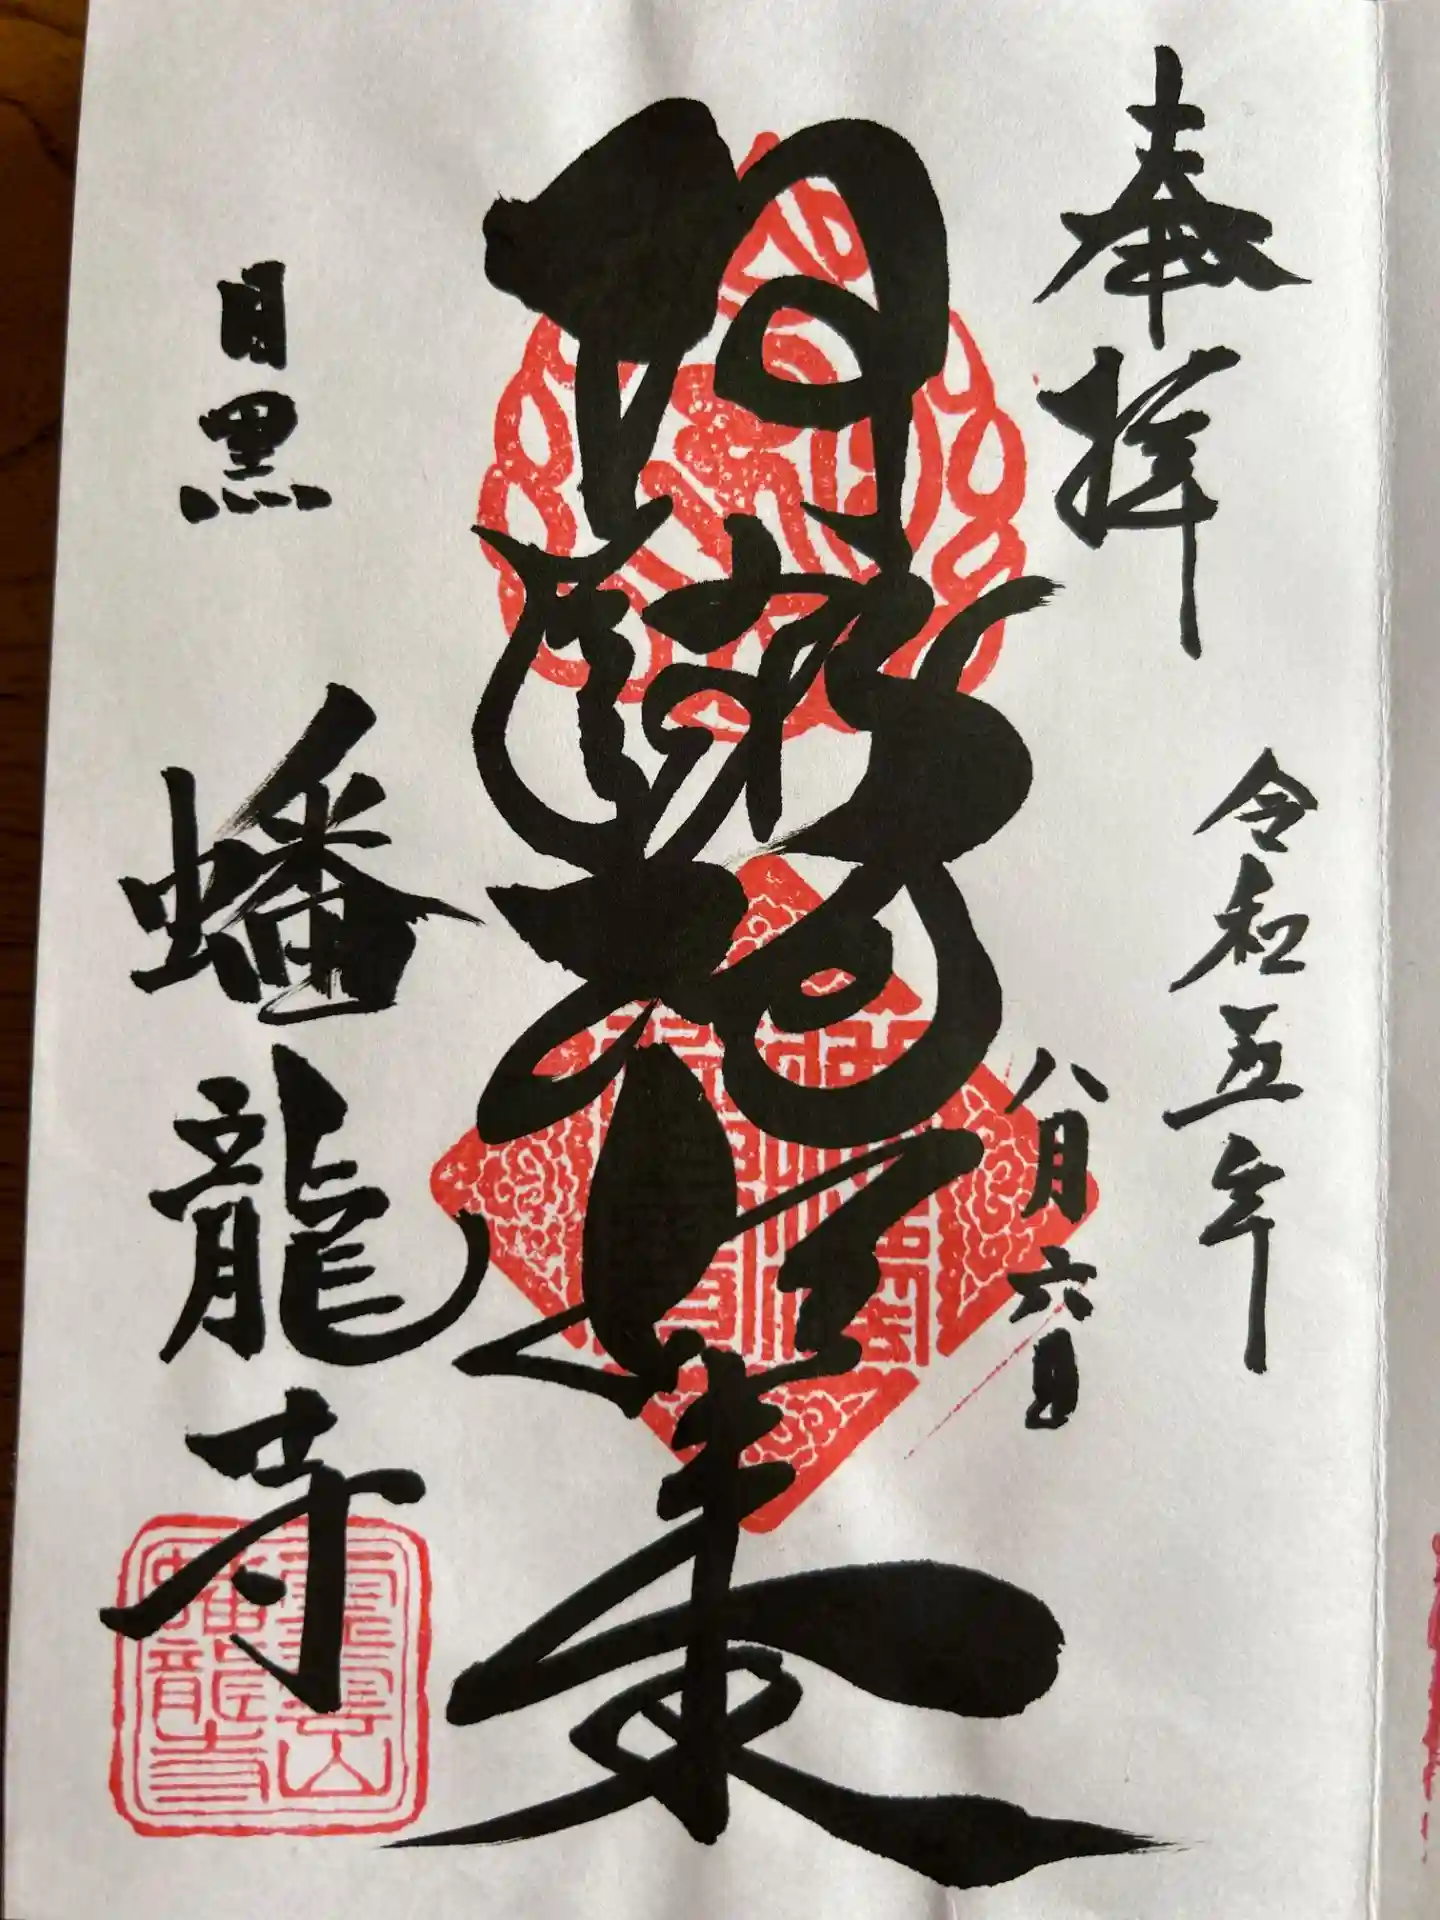 奉拝
令和五年
八月六日
阿弥陀如来
目黒
蟠龍寺
霊雲山
蟠龍寺